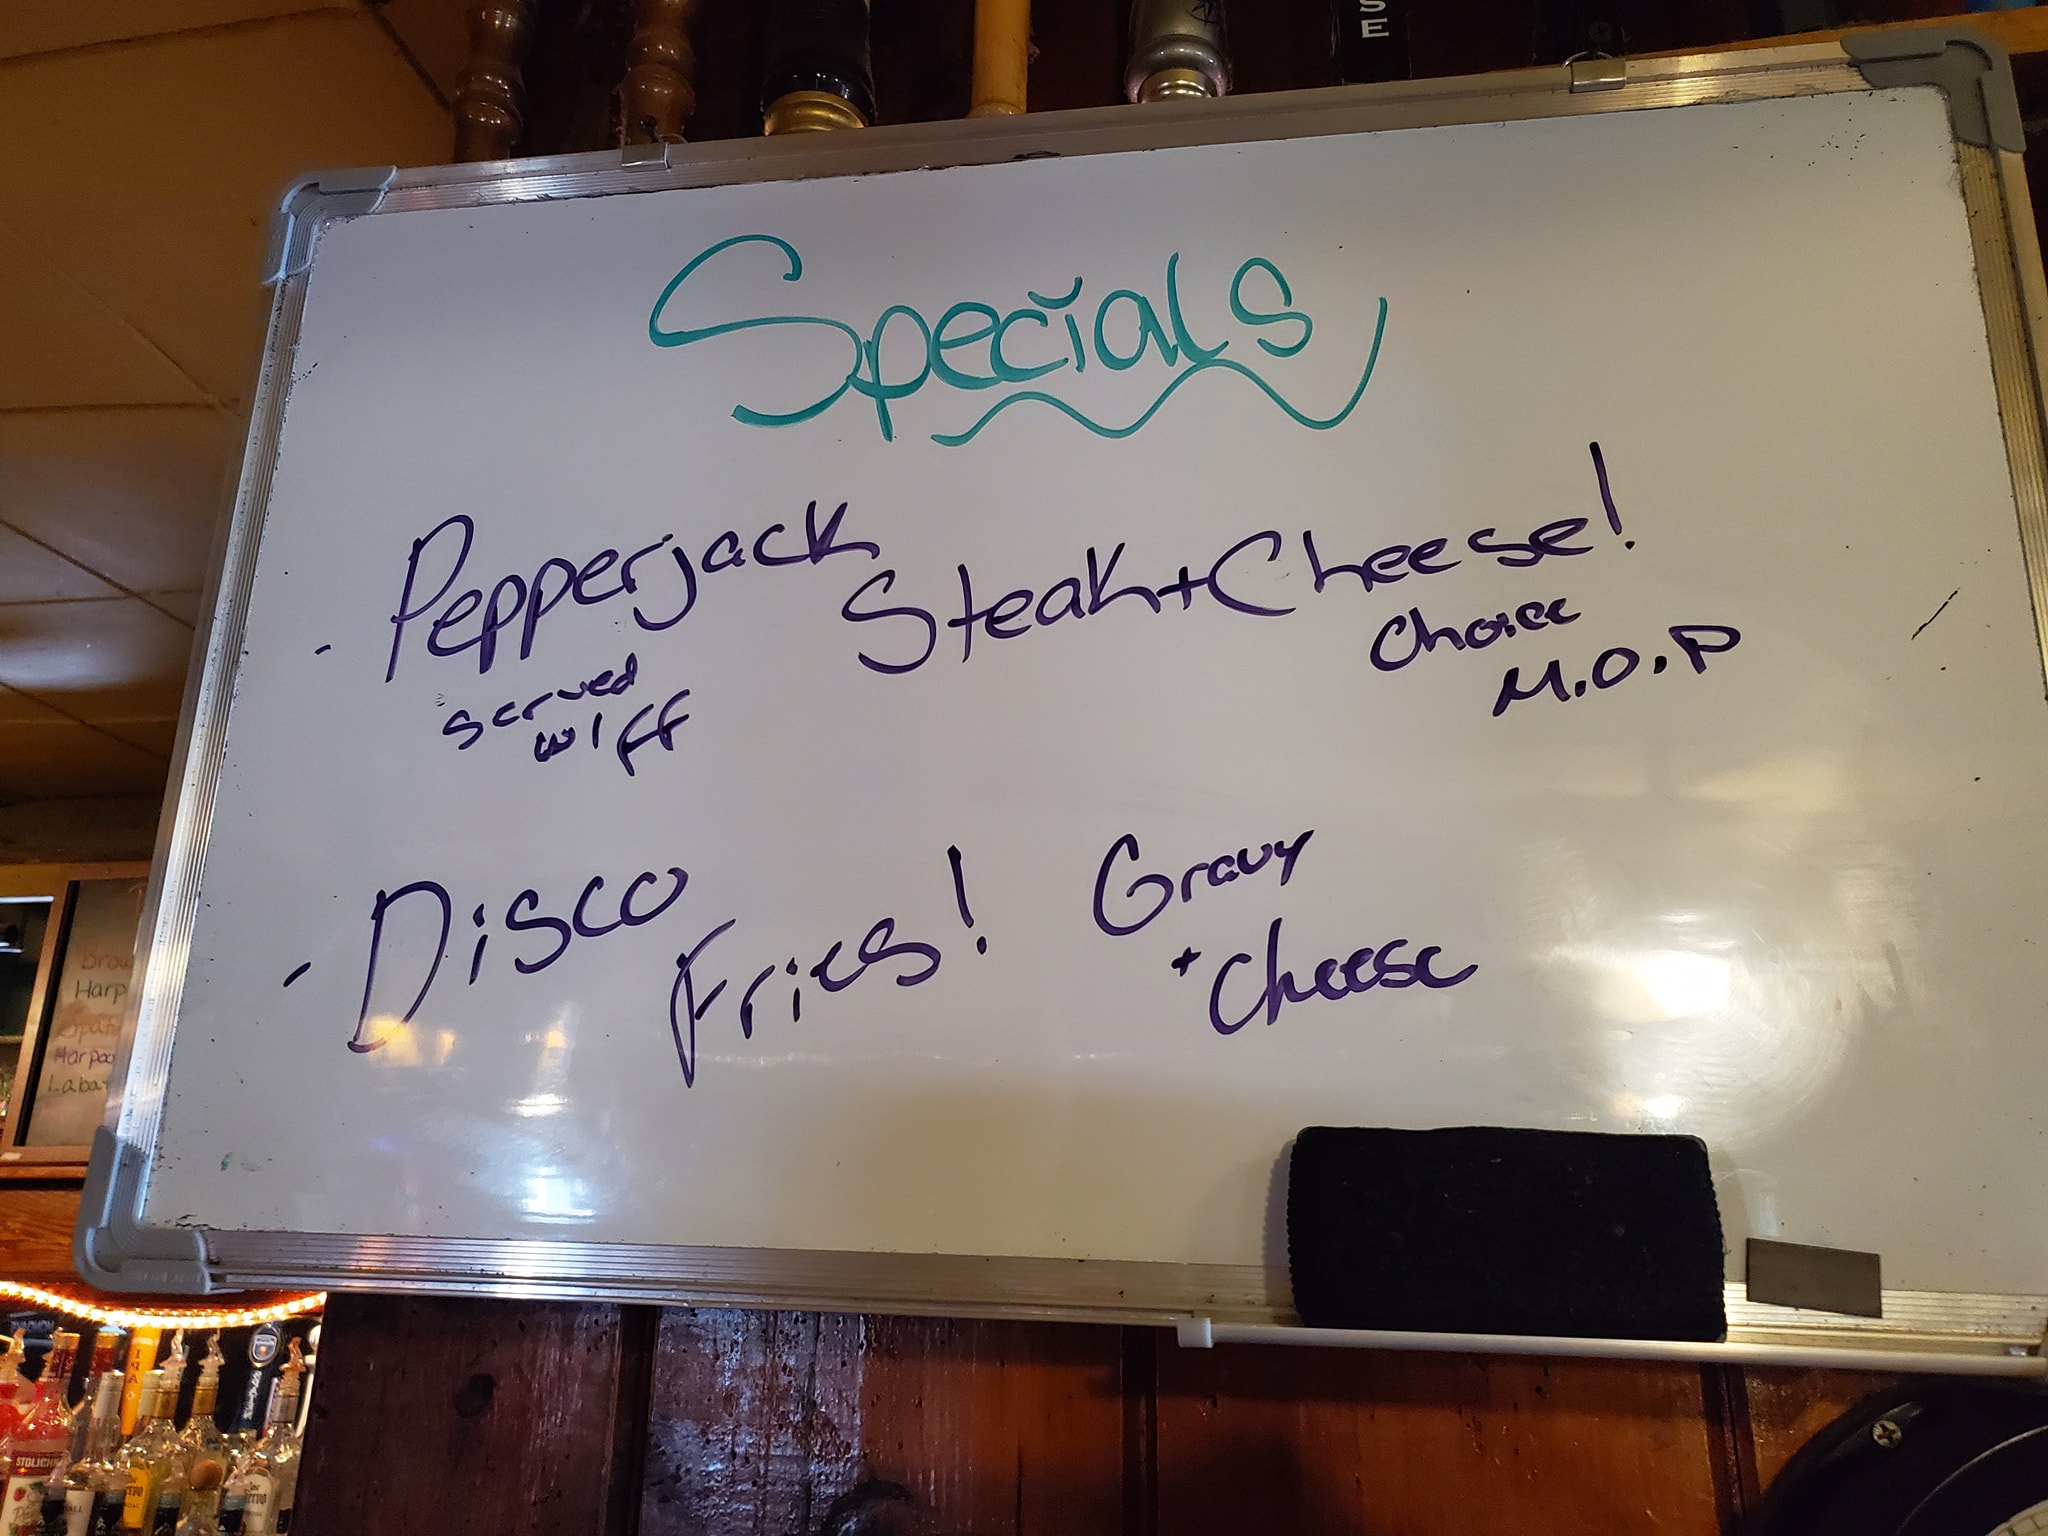 Specials
- Pepperjack Steak + Cheese!
served w/ FF
Choice M.O.P
- Disco Fries!
Gravy
+ Cheese
SE
Harp
Labat
IPA
STOLICHN